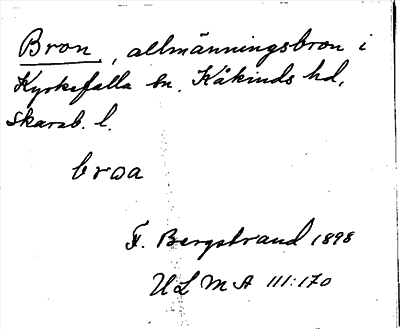 Bron, allmänningsbron i
Kyrkefalla sn. Kåkinds hd,
Skarab. l.
broa
F. Bergstrand 1898
ULMA 111:170